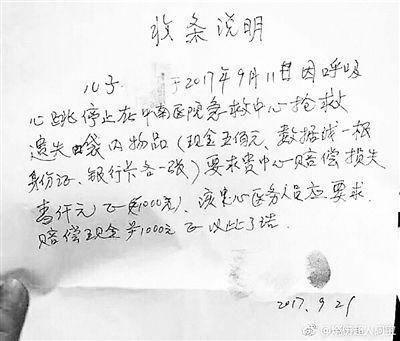 收条说明
儿子        于2017年9月11日因呼吸
心跳停止在中南医院急救中心抢救
遗失口袋内物品(现金五佰元、数据线一根
身份证、银行卡各一张)要求贵中心赔偿损失
壹仟元正(¥1000元)、该中心医务人员应要求
赔偿现金¥1000元正以此了结.
2017.9.21